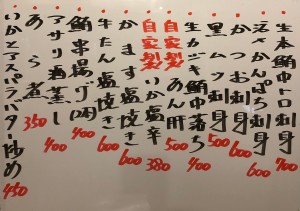 生本鮪中トロ刺身 700
活〆かんぱち刺身 600
かつお刺身 600
黒ムツ刺身 500
生カツキ鮪中落ち 400
自家製 あん肝 500
自家製 いか塩辛 380
かます塩焼き 600
牛たん塩焼き 600
鮪串揚げ 400
アサリ酒蒸し 400
あら煮 350
いかとアスパラバター炒め 450